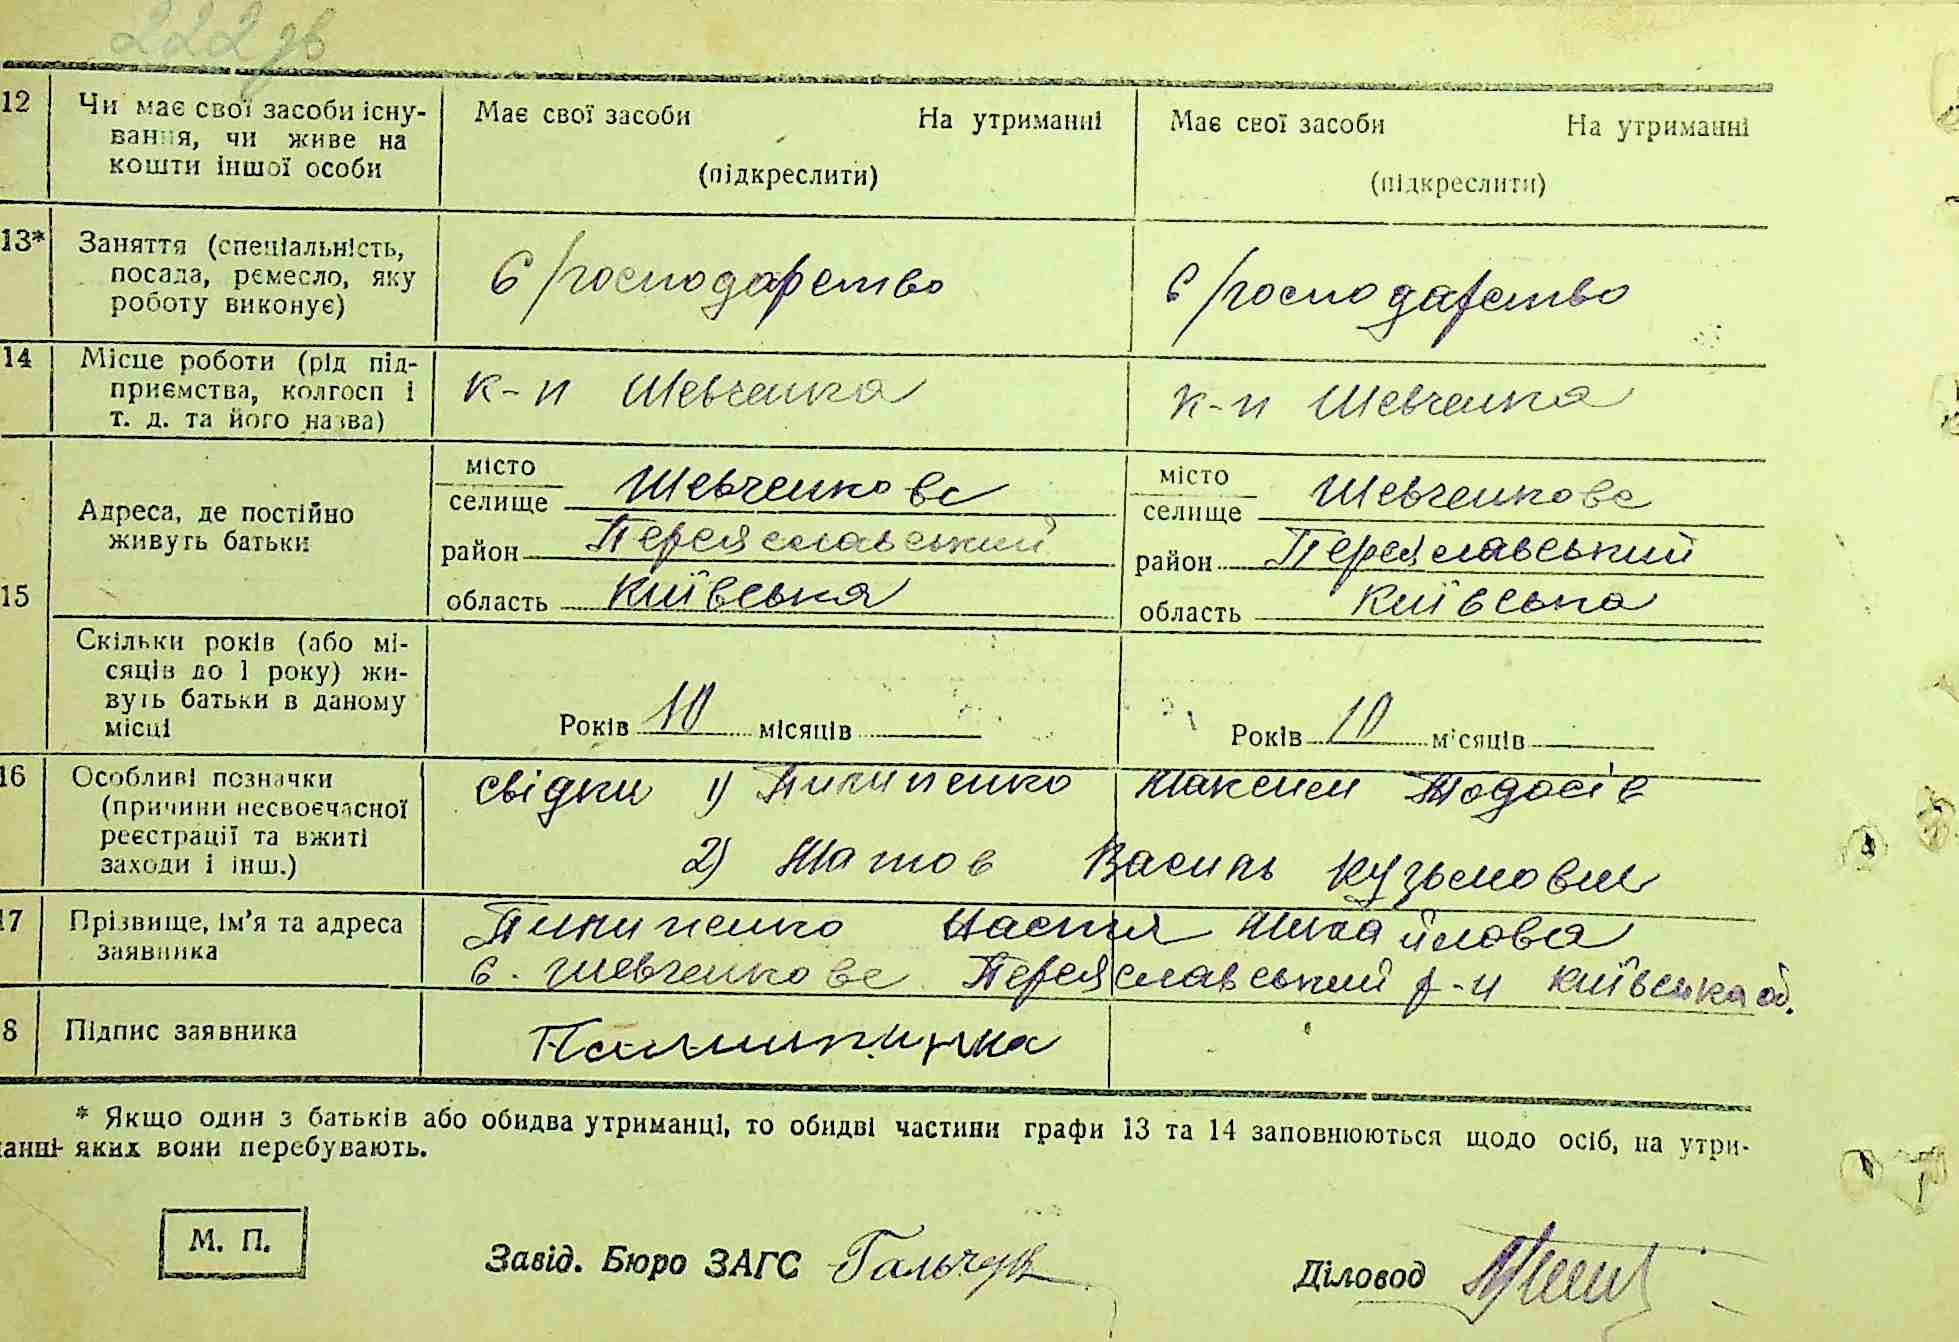 222 зв
12 Чи має свої засоби існу-
вання, чи живе на
кошти іншої особи
Має свої засоби На утриманні
(підкреслити)
Має свої засоби На утриманні
(підкреслити)
13* Заняття (спеціальність,
посада, ремесло, яку
роботу виконує)
С/господарство
с/господарство
14 Місце роботи (рід під-
приємства, колгосп і
т. д. та його назва)
к-п Шевченка
к-п Шевченка
15 Адреса, де постійно
живуть батьки
місто
селище Шевченкове
район Переяславський
область Київська
місто
селище Шевченкове
район Переяславський
область Київська
Скільки років (або мі-
сяців до 1 року) жи-
вуть батьки в даному
місці
Років 10 місяців
Років 10 місяців
16 Особливі позначки
(причини несвоєчасної
реєстрації та вжиті
заходи і інш.)
свідки 1) Пилипенко Максим Тодосів
2) Шатов Василь Кузьмович
17 Прізвище, ім'я та адреса
заявника
Пилипенко Настя Михайлова
с. Шевченкове Переяславський р-н Київська об.
8 Підпис заявника
* Якщо один з батьків або обидва утриманці, то обидві частини графи 13 та 14 заповнюються щодо осіб, на утри-
манні яких вони перебувають.
М. П.
Завід. Бюро ЗАГС
Діловод